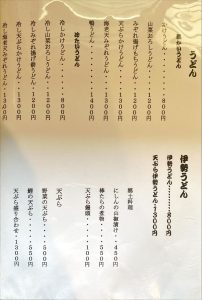 うどん
温かいうどん
かけうどん・・・・・・・・800円
山菜おろしうどん・・・・1200円
みぞれ揚げもちうどん・・1200円
天ぷらかけうどん・・・・1300円
海老天みぞれうどん・・・1300円
鴨うどん・・・・・・・・1400円
冷たいうどん
冷しかけうどん・・・・・・800円
冷し山菜おろしうどん・・1200円
冷しみぞれ揚げ餅うどん・1200円
冷し天ぷらかけうどん・・1300円
冷し海老天みぞれうどん・1300円
伊勢うどん
伊勢うどん・・・・・・・800円
天ぷら伊勢うどん・・・1300円
郷土料理
にしんの山椒漬け・・・450円
棒たらの煮物・・・・・550円
天ぷら饅頭・・・・・・100円
天ぷら
野菜の天ぷら・・・・・500円
鱚の天ぷら・・・・・・550円
天ぷら盛り合わせ・・1200円